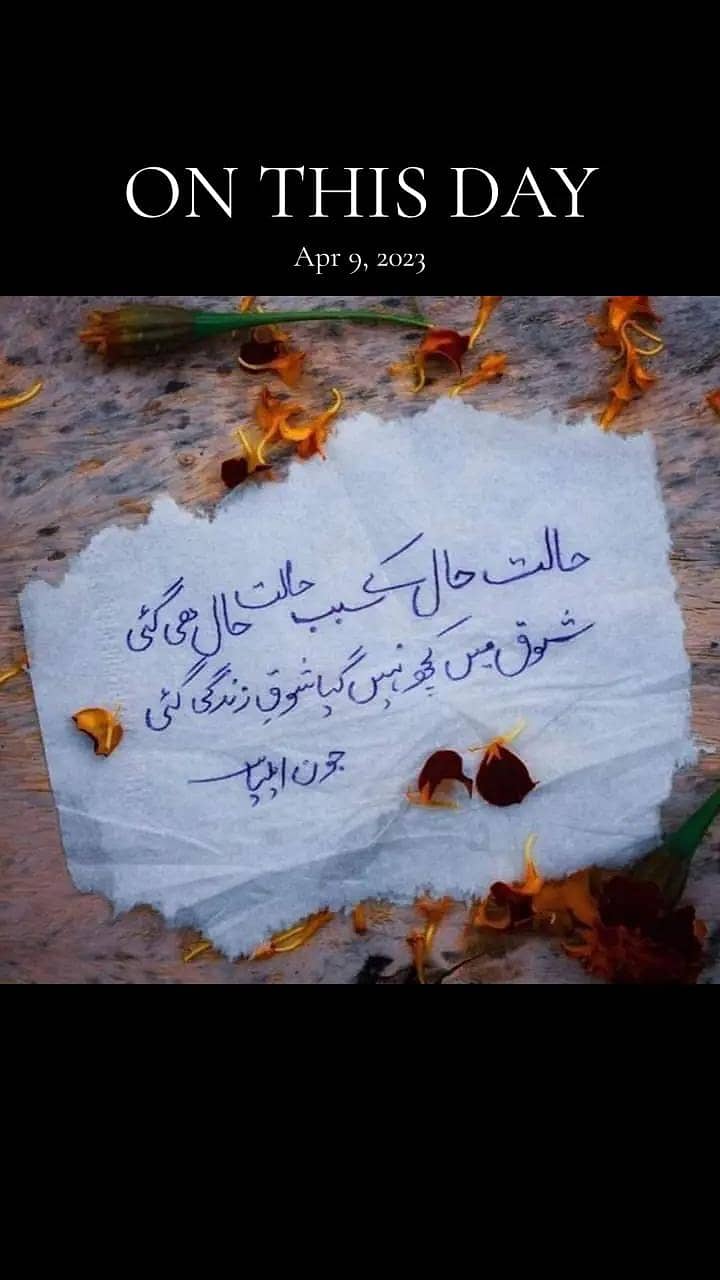 ON THIS DAY
Apr 9, 2023
حالت حال کے سبب حالت حال ھی گئی
شوق میں کچھ نہیں گیا شوقِ زندگی گئی
جون ایلیا